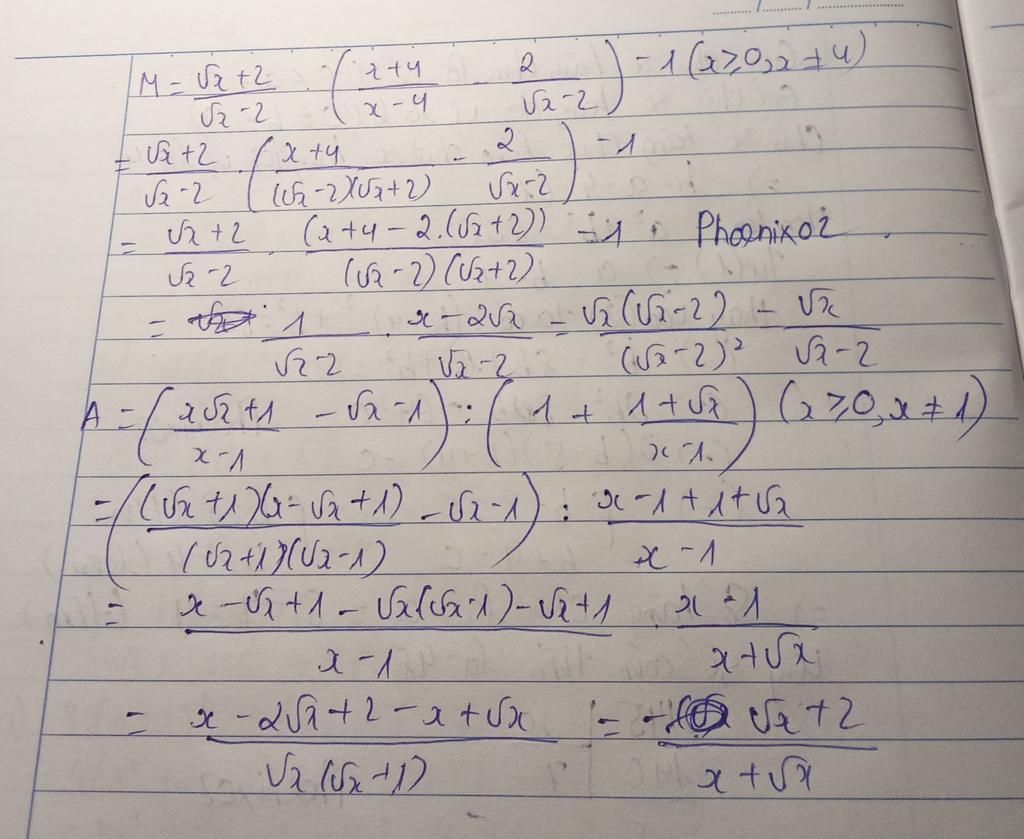 M = (√x+2)/(√x-2) . ((x+4)/(x-4) - 2/(√x-2)) - 1 (x≥0, x≠4)
= (√x+2)/(√x-2) . ((x+4)/((√x-2)(√x+2)) - 2/(√x-2)) - 1
= (√x+2)/(√x-2) . (x+4-2.(√x+2))/((√x-2)(√x+2)) - 1 . Phoenix02
= 1/(√x-2) . (x-2√x)/(√x-2) = √x(√x-2)/(√x-2)² = √x/(√x-2)
A = ((x√x+1)/(x-1) - √x-1) : (1 + (1+√x)/(x-1)) (x≥0, x≠1)
= ((√x+1)(x-√x+1)/((√x+1)(√x-1)) - √x-1) : (x-1+1+√x)/(x-1)
= (x-√x+1-√x(√x-1)-√x+1)/(x-1) . (x-1)/(x+√x)
= (x-2√x+2-x+√x)/(√x(√x+1)) = (-√x+2)/(x+√x)